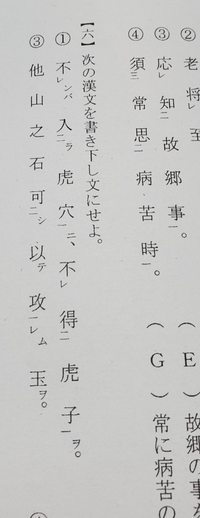 ② 老将レ至
③ 応レ知二故郷事一。
④ 須三常思二病苦時一。
（ E ）故郷の事を
（ G ）常に病苦の
【六】次の漢文を書き下し文にせよ。
① 不レンバ入ラ虎穴一ニ、不レ得二虎子一ヲ。
③ 他山之石可二シ以テ攻一レム玉ヲ。